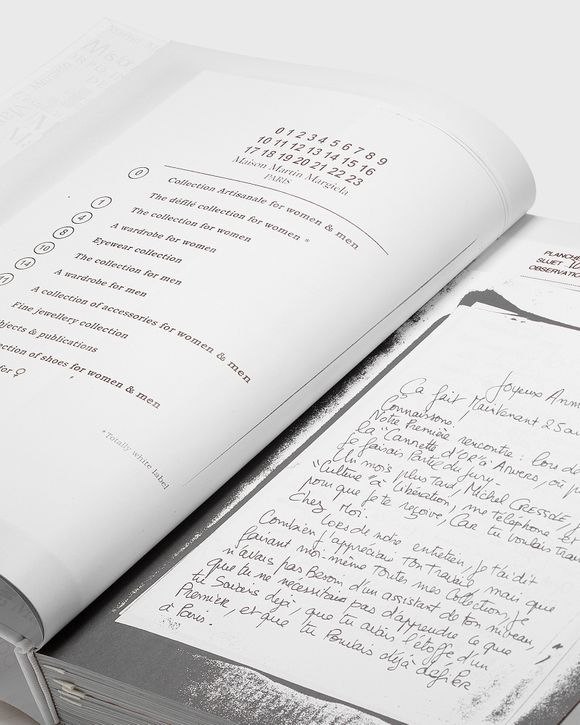 0 1 2 3 4 5 6 7 8 9
10 11 12 13 14 15 16
17 18 19 20 21 22 23
Maison Martin Margiela
PARIS
0 Collection Artisanale for women & men
1 The défilé collection for women *
4 The collection for women
A wardrobe for women
8 Eyewear collection
10 The collection for men
14 A wardrobe for men
11 A collection of accessories for women & men
Fine jewellery collection
bjects & publications
ction of shoes for women & men
for ♀
*Totally white label
PLANCHE
SUJET
OBSERVATIO
Joyeux Ann
Ça fait Maintenant 2
Connaissons.
Notre Première rencontre: lors de
la "Cannette d'OR" à Anvers, où
Je faisais Partie du Jury.
Un mois plus Tard, Michel Cressole,
"Culture" à Libération, me téléphone et
pour que je te reçoive, Car tu voulais
Chez Moi.
Lors de notre entretien, Je t'ai dit
Combien j'appréciais Ton Travail, mais que
faisant moi-même Toutes mes Collection, je
n'avais pas Besoin d'un assistant de ton niveau,
que tu ne nécessitais pas d'apprendre ce que
tu Savais déjà, que tu avais l'étoffe d'un
Premier, et que tu Pouvais déjà défiler
à Paris.